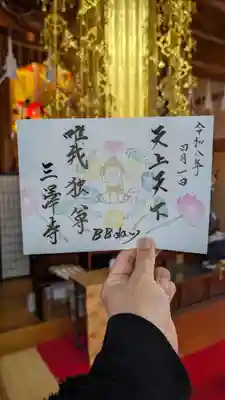 令和八年
四月一日
天上天下
唯我独尊
BBday
三澤寺